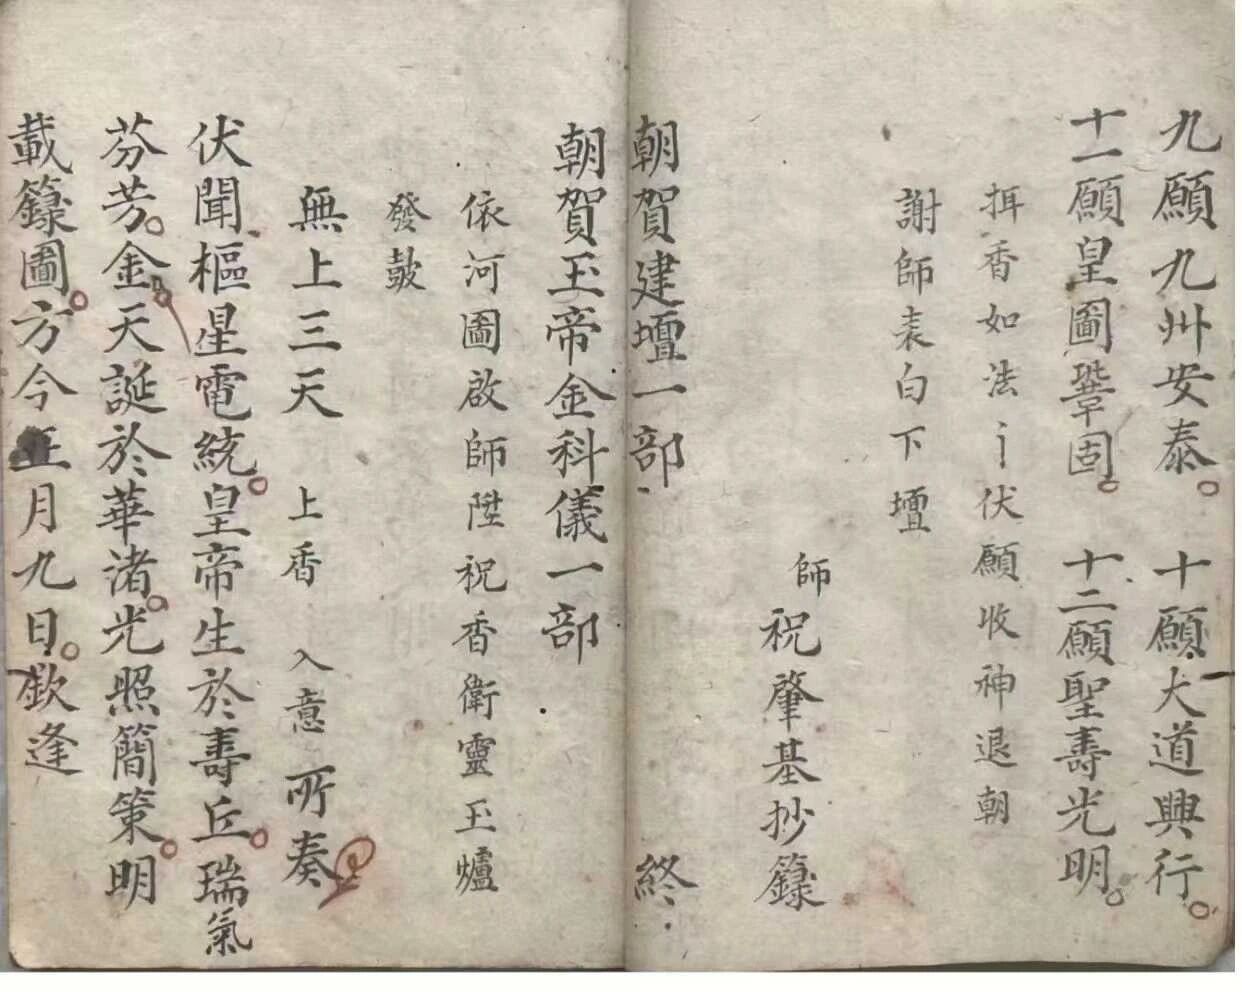 九願九州安泰。十願大道興行。
十一願皇圖鞏固。十二願聖壽光明。
揖香如法 伏願收神退朝
謝師表白下壇
師
祝肇基抄籙
朝賀建壇一部 終
朝賀玉帝金科儀一部
依河圖啟師陞祝香衛靈玉爐
發鼓
無上三天 上香 入意 所奏
伏聞樞星電統。皇帝生於壽丘。瑞氣
芬芳。金天誕於華渚。光照簡策。明
載籙圖。方今正月九日。欽逢